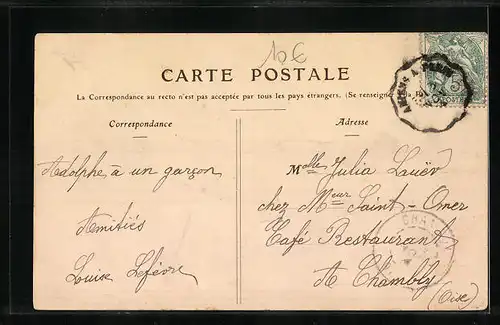 10 €
CARTE POSTALE
La Correspondance au recto n'est pas acceptée par tous les pays étrangers. (Se renseigner
Correspondance
Adresse
Adolphe à un garçon
Amitiés
Louise Lefèvre
Melle Julia
chez Meur Saint-Omer
Café Restaurant
A Chambly
(Oise)